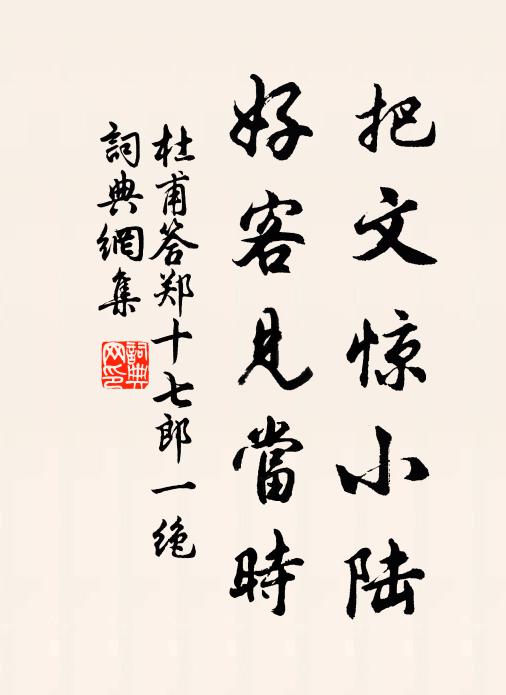 把文惊小陆
好客見當時
杜甫答郑十七郎一绝
詞典網集
詞典
网印